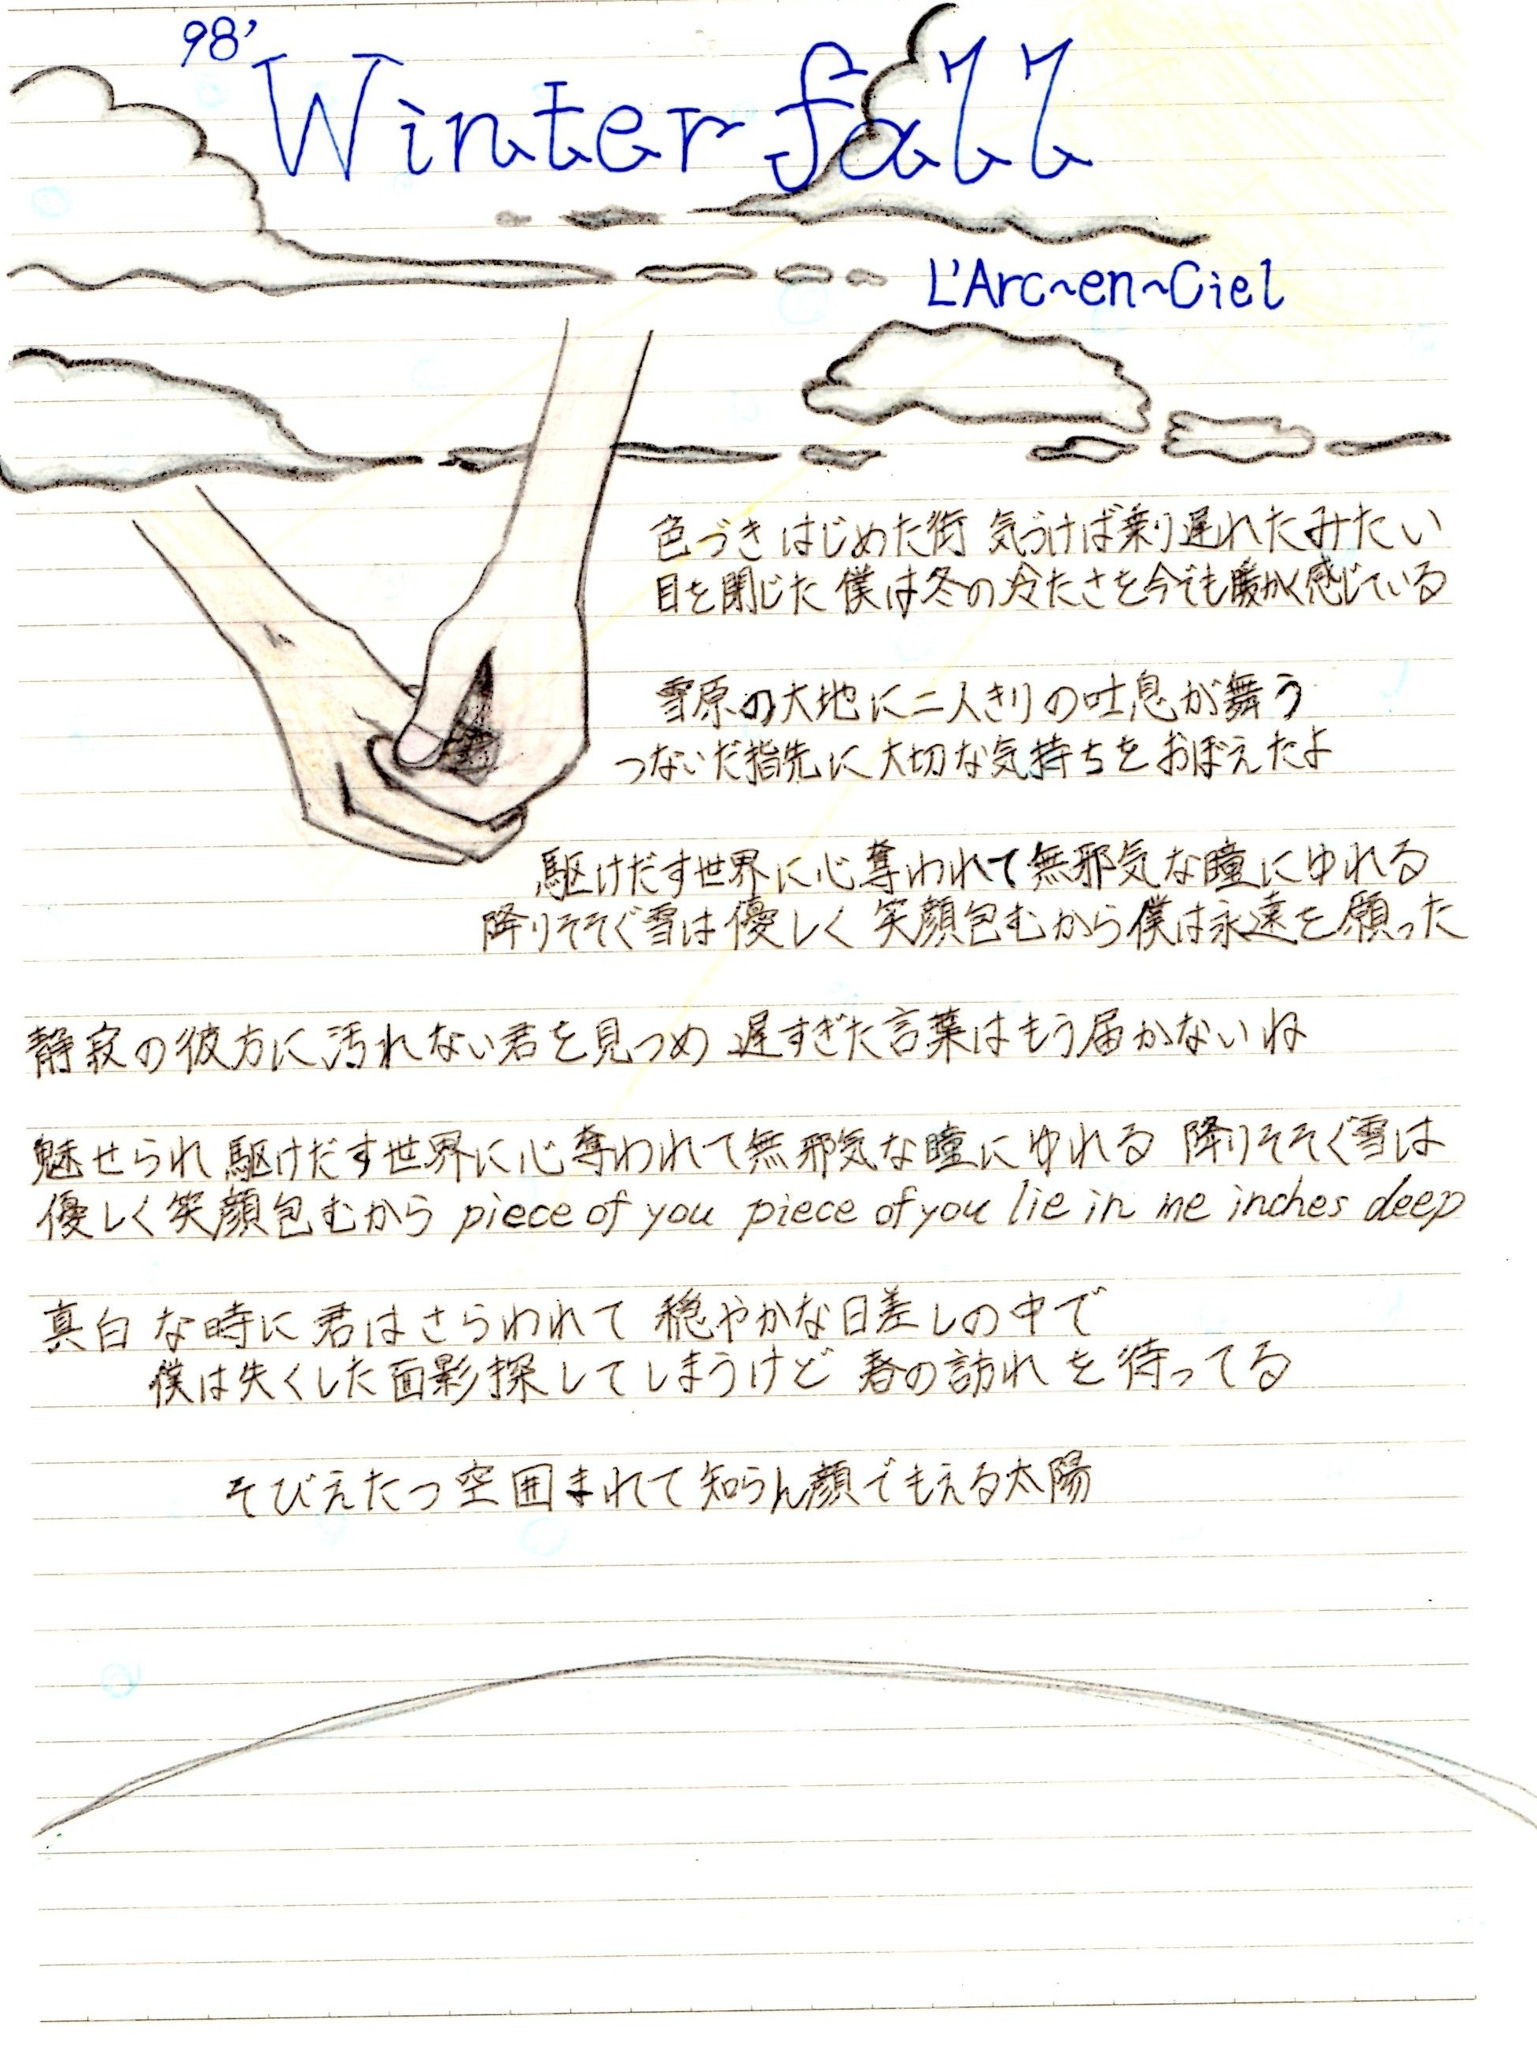 98'
Winter fall
L'Arc~en~Ciel
色づきはじめた街 気づけば乗り遅れたみたい
目を閉じた 僕は冬の冷たさを今でも暖かく感じている
雪原の大地に二人きりの吐息が舞う
つないだ指先に大切な気持ちをおぼえたよ
駆けだす世界に心奪われて無邪気な瞳にゆれる
降りそそぐ雪は優しく 笑顔包むから僕は永遠を願った
静寂の彼方に汚れない君を見つめ 遅すぎた言葉はもう届かないね
魅せられ駆けだす世界に心奪われて無邪気な瞳にゆれる 降りそそぐ雪は
優しく笑顔包むから piece of you piece of you lie in me inches deep
真白な時に君はさらわれて 穏やかな日差しの中で
僕は失くした面影探してしまうけど 春の訪れを待ってる
そびえたつ空囲まれて知らん顔でもえる太陽